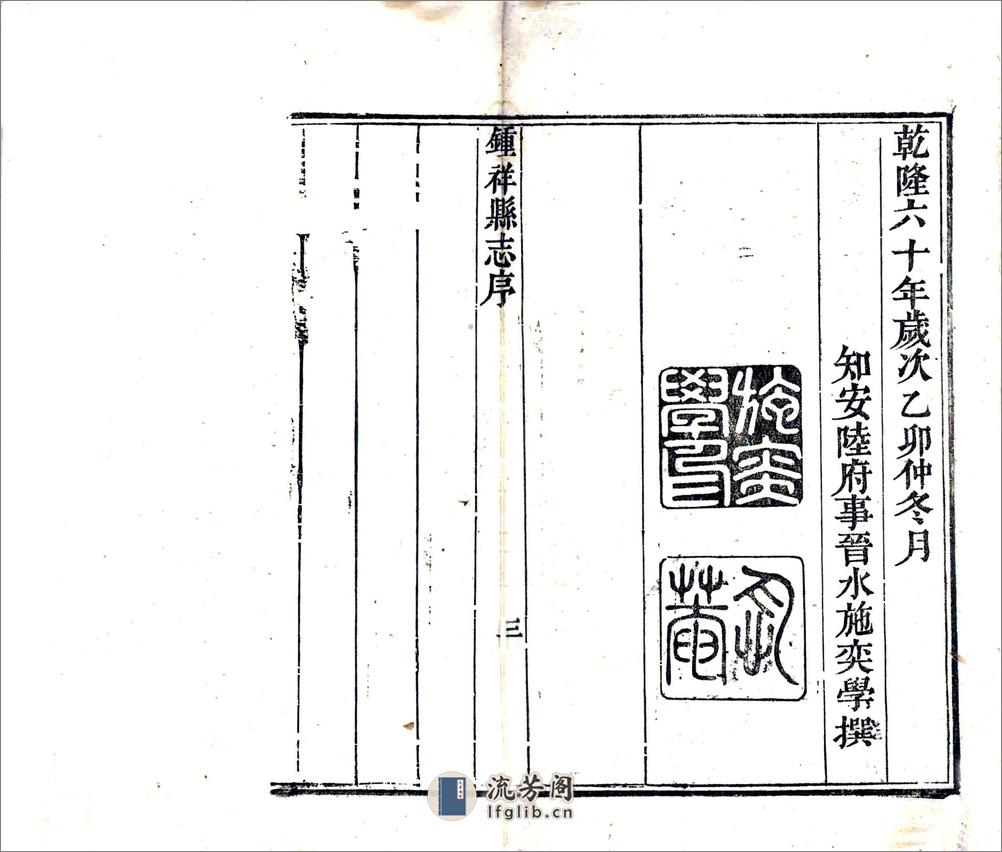 乾隆六十年歲次乙卯仲冬月
知安陸府事晉水施奕學撰
施奕學印
鍾祥縣志序
三
流芳阁
lfglib.cn